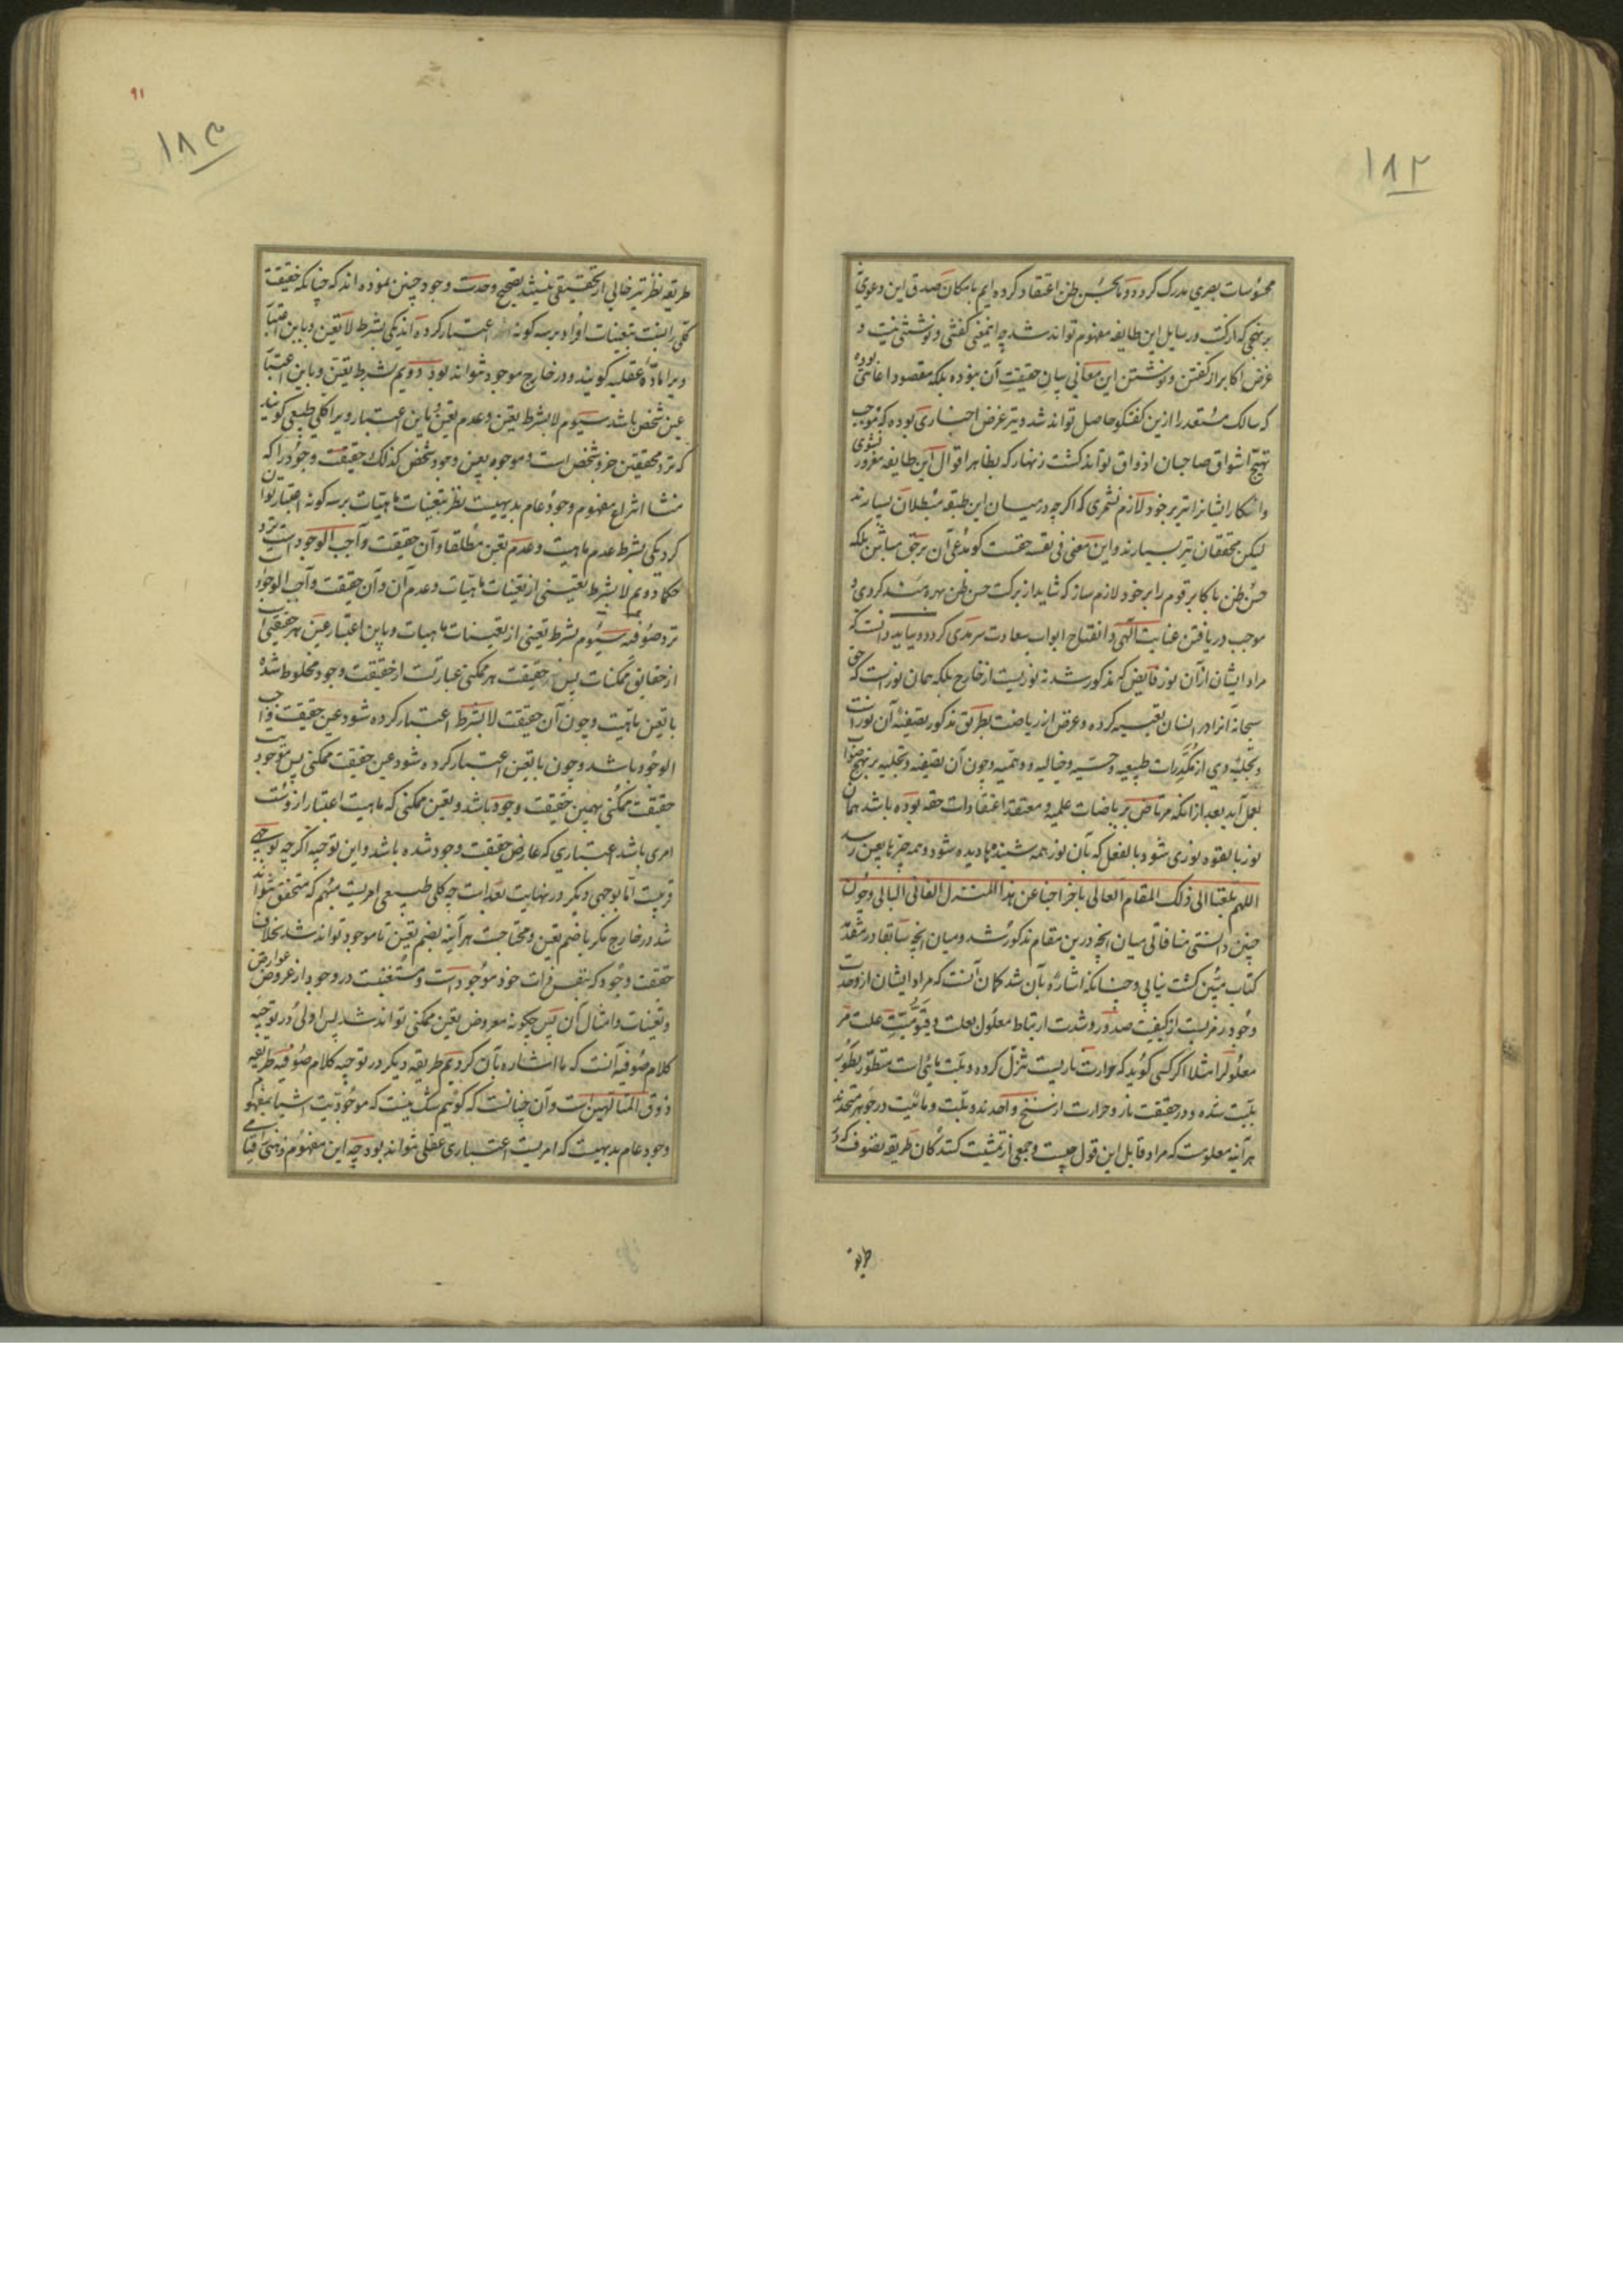 ۱۸۲
محسوسات بصری مدرک کردد و ما بحسن ظن اعتقاد کرده ایم بامکان صدق این دعوی
برخی که از کتب و رسایل این طایفه مفهوم تواند شد چه اینمعنی کفتنی و نوشتنی نیست و
غرض اکابر از کفتن و نوشتن این معانی بیان حقیقت آن نبوده بلکه مقصود اعانتی بوده
که سالک مستعد را ازین کفتکو حاصل تواند شد و نیز غرض اخباری بوده که موجب
تهیج اشواق صاحبان اذواق تواند کشت زنهار که بظاهر اقوال این طایفه مغرور نشوی
و انکار ایشانرا نیز بر خود لازم نشمری که اکر چه در میان این طبقه مبطلان بسیارند
لیکن محققان نیز بسیارند و این معنی فی نفسه حقست کو مدعی آن بر حق مباش بلکه
حسن ظن باکابر قوم را بر خود لازم ساز که شاید از برکت حسن ظن بهره مند کردی و
موجب دریافتن عنایت الهی و انفتاح ابواب سعادت سرمدی کردد و بباید دانست که
مراد ایشان از آن نور فایض که مذکور شد نه نوریست از خارج بلکه همان نور است که حق
سبحانه آنرا در انسان تعبیه کرده و غرض از ریاضت بطریق مذکور تصفیه آن نور است
و تجلیه وی از مکدرات طبیعیه و حسیه و خیالیه و وهمیه و چون آن تصفیه و تجلیه بر نهج صواب
بعمل آید بعد از انکه مرتاض بریاضات علمیه و معتقد اعتقادات حقه بوده باشد همان
نور بالقوه نوری شود بالفعل که بآن نور همه شنیدها دیده شود و همه خبرها بعین رسد
اللهم بلغنا الی ذلک المقام العالی باخراجنا عن هذا المنزل الفانی البالی و چون
چنین دانستی منافاتی میان آنچه درین مقام مذکور شد و میان آنچه سابقا در مقدمه
کتاب مبین کشت نیابی و چنانکه اشاره بآن شد کمان آنست که مراد ایشان از وحدت
وجود رمزیست از کیفیت صدور و شدت ارتباط معلول بعلت و قیومیت علت مر
معلول را مثلا اکر کسی کوید که حرارت ناریست تنزل کرده و بلت مائی است متطور بطور
بلیت شده و در حقیقت نار و حرارت از سنخ واحدند و بلت و مائیت در جوهر متحدند
هر آینه معلومست که مراد قایل این قول چیست و جمعی از تمشیت کنندکان طریقه تصوف که در
طریقه
۹۱
۱۸۳
طریقه نظر نیز خالی از تحقیقی نیستند بتصحیح وحدت وجود چنین نموده اند که چنانکه حقیقت
کلی را نسبت بتعینات افراد بر سه کونه اعتبار کرده اند یکی بشرط لا تعین و باین اعتبار
ویرا مادۀ عقلیه کویند و در خارج موجود نتواند بود دویم بشرط تعین و باین اعتبار
عین شخص باشد سیوم لا بشرط تعین و عدم تعین و باین اعتبار ویرا کلی طبیعی کویند
که نزد محققین جزو شخص است و موجود بعین وجود شخص کذلک حقیقت وجود را که
منشا انتزاع مفهوم وجود عام بدیهیست نظر بتعینات ماهیات بر سه کونه اعتبار توان
کرد یکی بشرط عدم ماهیت و عدم تعین مطلقا و آن حقیقت واجب الوجود است نزد
حکما دویم لا بشرط تعینی از تعینات ماهیات و عدم آن و آن حقیقت واجب الوجود است
نزد صوفیه سیوم بشرط تعینی از تعینات ماهیات و باین اعتبار عین هر حقیقتی است
از حقایق ممکنات پس حقیقت هر ممکنی عبارتست از حقیقت وجود مخلوط شده
با تعین ماهیت و چون آن حقیقت لا بشرط اعتبار کرده شود عین حقیقت واجب
الوجود باشد و چون با تعین اعتبار کرده شود عین حقیقت ممکنی پس موجودیت
حقیقت ممکنی بهمین حقیقت وجود باشد و تعین ممکنی که ماهیت اعتبار از وست
امری باشد اعتباری که عارض حقیقت وجود شده باشد و این توجیه اکر چه بوجهی
قریبست اما بوجهی دیکر در نهایت بعد است چه کلی طبیعی امریست مبهم که متحقق نتواند
شد در خارج مکر با ضم تعین و محتاجست هر آینه بضم تعین تا موجود تواند شد بخلاف
حقیقت وجود که بنفس ذات خود موجود است و مستغنیست در وجود از عروض عوارض
و تعینات و امثال آن پس چکونه معروض تعین ممکنی تواند شد پس اولی در توجیه
کلام صوفیه آنست که ما اشاره بآن کردیم طریقه دیکر در توجیه کلام صوفیه طریقه
ذوق المتالهین است و آن چنانست که کوییم شک نیست که موجودیت اشیا بمفهوم
وجود عام بدیهیست که امریست اعتباری عقلی نتواند بود چه این مفهوم ذهنی